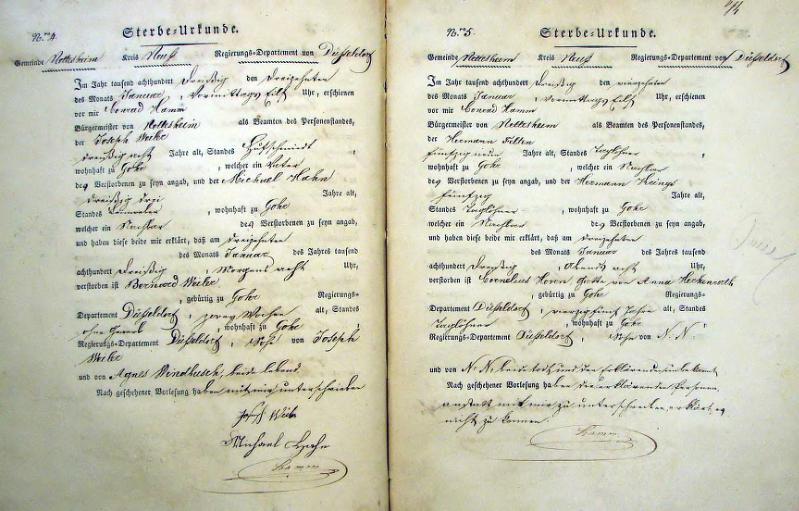 Nro 4.
Sterbe=Urkunde.
Gemeinde Nettesheim Kreis Neuß Regierungs=Departement von Düsseldorf
Im Jahr tausend achthundert dreißig den dreizehnten
des Monats Januar, Vormittags eilf Uhr, erschienen
vor mir Conrad Hamm
Bürgermeister von Nettesheim als Beamten des Personenstandes,
der Joseph
dreißig acht Jahre alt, Standes Hufschmidt,
wohnhaft zu Gohr, welcher ein Vater
des Verstorbenen zu seyn angab, und der Michael Hahn
dreißig drei Jahre alt,
Standes, wohnhaft zu Gohr
welcher ein Nachbar des Verstorbenen zu seyn angab,
und haben diese beide mir erklärt, daß am dreizehnten
des Monats Januar des Jahres tausend
achthundert dreißig, Morgens acht Uhr,
verstorben ist Bernard
, gebürtig zu Gohr Regierungs=
Departement Düsseldorf, zwey Wochen alt, Standes
ohne, wohnhaft zu Gohr
Regierungs=Departement Düsseldorf, Sohn von Joseph
und von Agnes, beide lebend.
Nach geschehener Vorlesung haben mit mir unterschrieben
Michael Hahn
Hamm
Nro 5.
Sterbe=Urkunde.
Gemeinde Nettesheim Kreis Neuß Regierungs=Departement von Düsseldorf
Im Jahr tausend achthundert dreißig den vierzehnten
des Monats Januar, Vormittags eilf Uhr, erschienen
vor mir Conrad Hamm
Bürgermeister von Nettesheim als Beamten des Personenstandes,
der Hermann
fünfzig neun Jahre alt, Standes Taglöhner,
wohnhaft zu Gohr, welcher ein Nachbar
des Verstorbenen zu seyn angab, und der Hermann
fünfzig Jahre alt,
Standes Taglöhner, wohnhaft zu Gohr
welcher ein Nachbar des Verstorbenen zu seyn angab,
und haben diese beide mir erklärt, daß am dreizehnten
des Monats Januar des Jahres tausend
achthundert dreißig, Abends acht Uhr,
verstorben ist Cornelius, Gatte von Anna
, gebürtig zu Gohr Regierungs=
Departement Düsseldorf, vierzig fünf Jahre alt, Standes
Taglöhner, wohnhaft zu Gohr
Regierungs=Departement Düsseldorf, Sohn von N. N.
und von N. N. beide todt und den Erklärenden unbekannt.
Nach geschehener Vorlesung haben die erklärende Personen,
anstatt mit mir zu unterschreiben, erklärt, es
nicht zu können.
Hamm